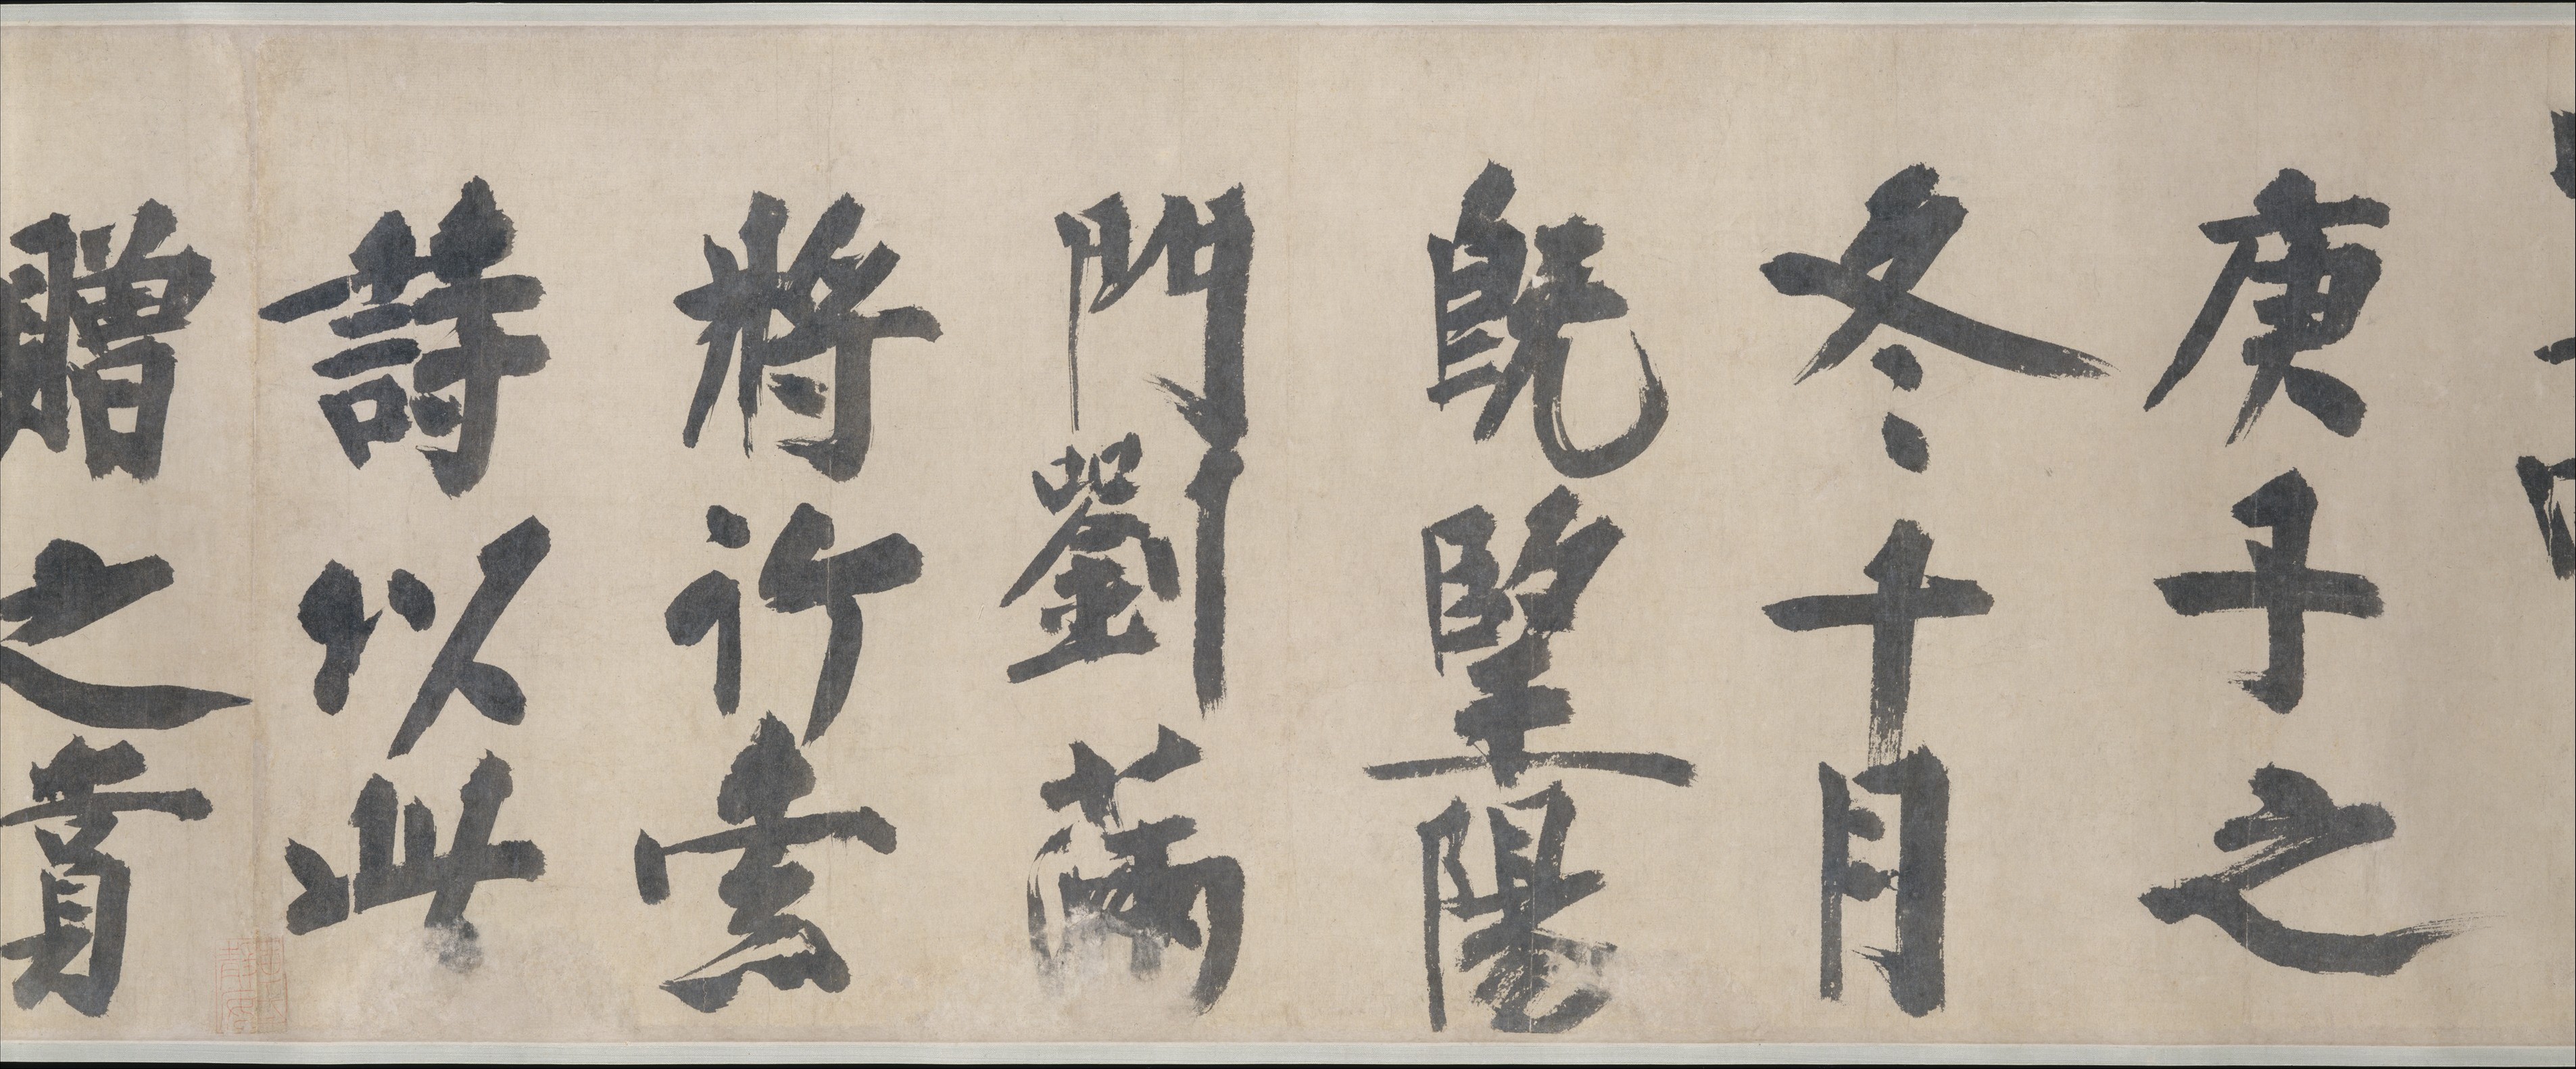 庚子之
冬十月
既望陽
門劉滿
將行索
詩以此
贈之賁